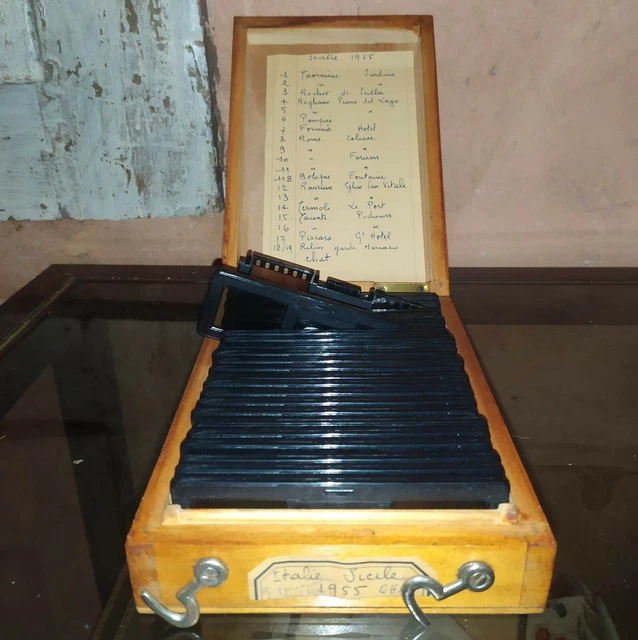 Italie 1955
1 Taormine Jardins
2 "
3 Rocher de Scilla
4 Rogliano Piano del Lago
5 "
6 Pompei
7 Formia Hotel
8 Rome Colisée
9 "
10 " Forum
11 "
11B Bologne Fontaine
12 Ravenne Eglise San Vitale
13 "
14 Termoli Le Port
15 Tarente Pecheurs
16 "
17 Pescara Gd Hotel
18/19 garde Monaco
Chat
Italie Sicile
1955